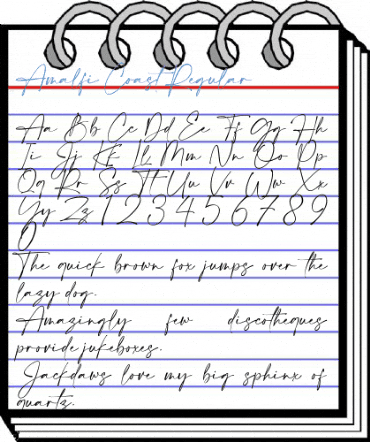 Amalfi Coast Regular
Aa Bb Cc Dd Ee Ff Gg Hh
Ii Jj Kk Ll Mm Nn Oo Pp
Qq Rr Ss Tt Uu Vv Ww Xx
Yy Zz 1 2 3 4 5 6 7 8 9
0
The quick brown fox jumps over the
lazy dog.
Amazingly few discotheques
provide jukeboxes.
Jackdaws love my big sphinx of
quartz.